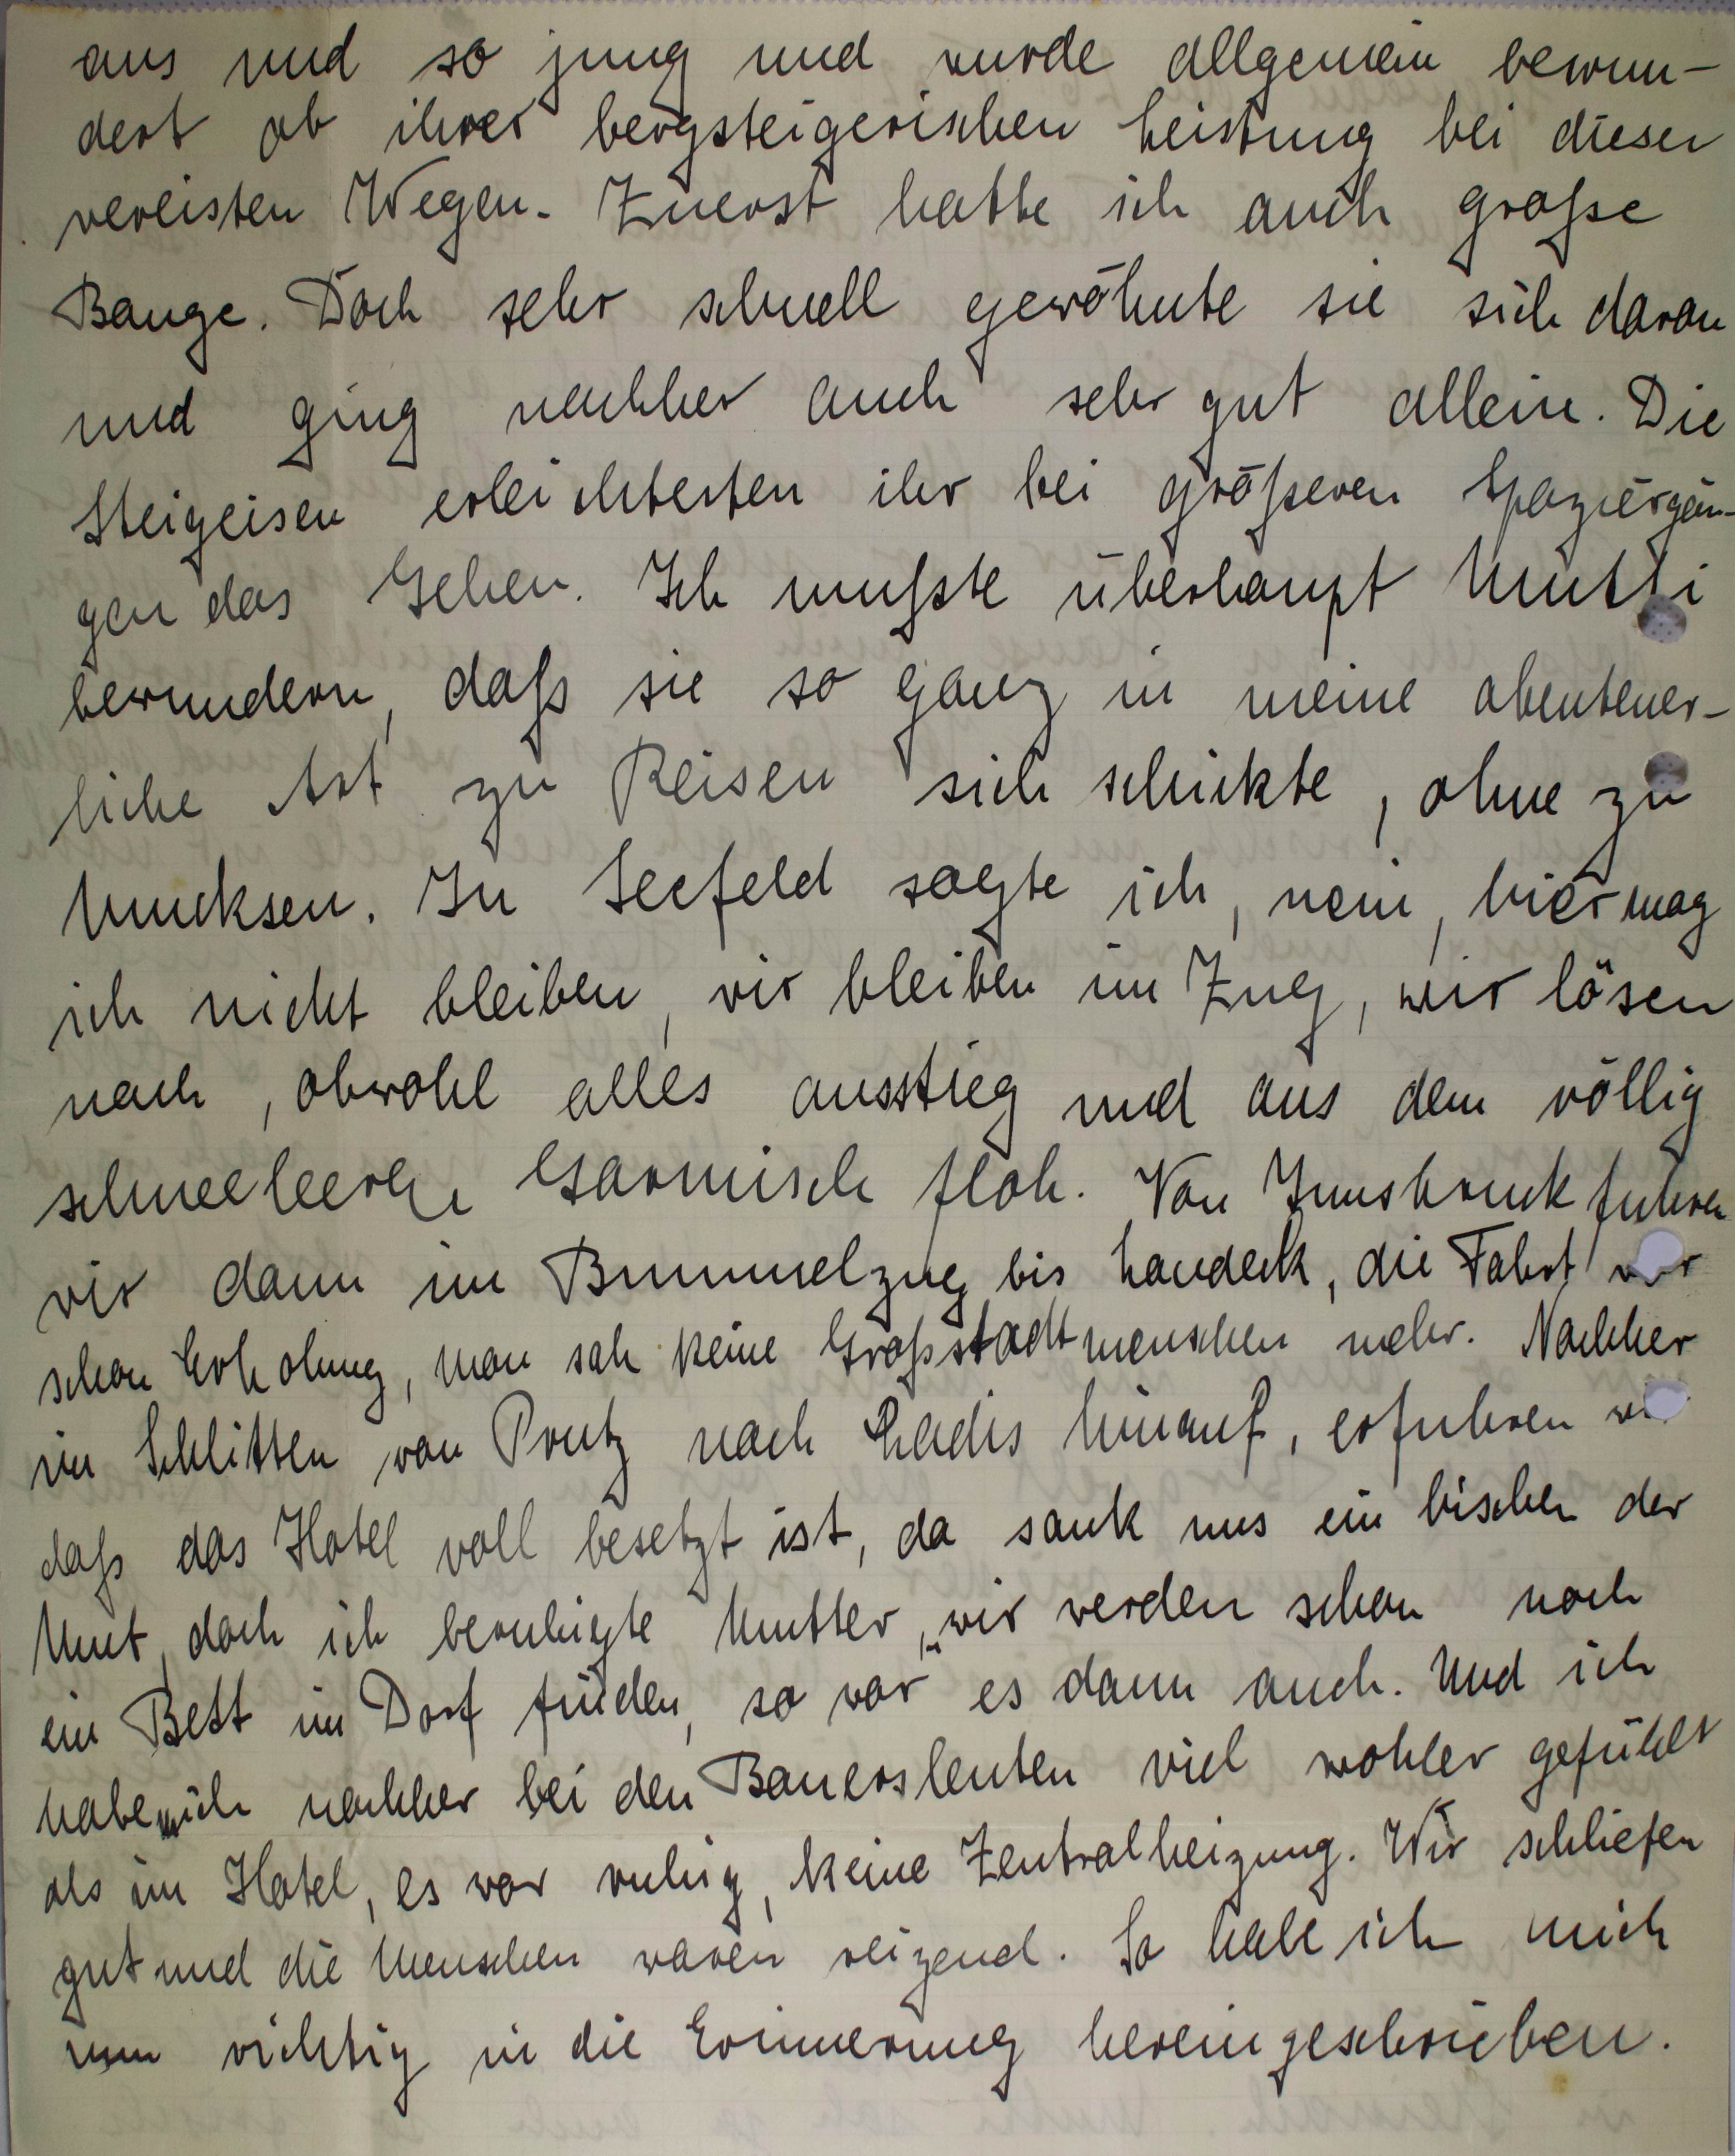 aus und so jung und wurde allgemein bewun-
dert ob ihrer bergsteigerischen Leistung bei diesen
vereisten Wegen. Zuerst hatte ich auch große
Bange. Doch sehr schnell gewöhnte sie sich daran
und ging nachher auch sehr gut allein. Die
Steigeisen erleichterten ihr bei größeren Spaziergän-
gen das Gehen. Ich mußte überhaupt Mutti
bewundern, daß sie so ganz in meine abenteuer-
liche Art zu Reisen sich schickte, ohne zu
Mucksen. In Seefeld sagte ich, nein, hier mag
ich nicht bleiben, wir bleiben im Zug, wir lösen
nach, obwohl alles ausstieg und aus dem völlig
schneeleeren Garmisch floh. Von Innsbruck fuhren
wir dann im Bummelzug bis Landeck, die Fahrt war
schon Erholung, man sah keine Großstadtmenschen mehr. Nachher
im Schlitten von Prutz nach Ladis hinauf, erfuhren wir
daß das Hotel voll besetzt ist, da sank uns ein bischen der
Mut, doch ich beruhigte Mutter, „wir werden schon noch
ein Bett im Dorf finden, so war es dann auch. Und ich
habe mich nachher bei den Bauersleuten viel wohler gefühlt
als im Hotel, es war ruhig, keine Zentralheizung. Wir schliefen
gut und die Menschen waren reizend. So habe ich mich
nun richtig in die Erinnerung hereingeschrieben.